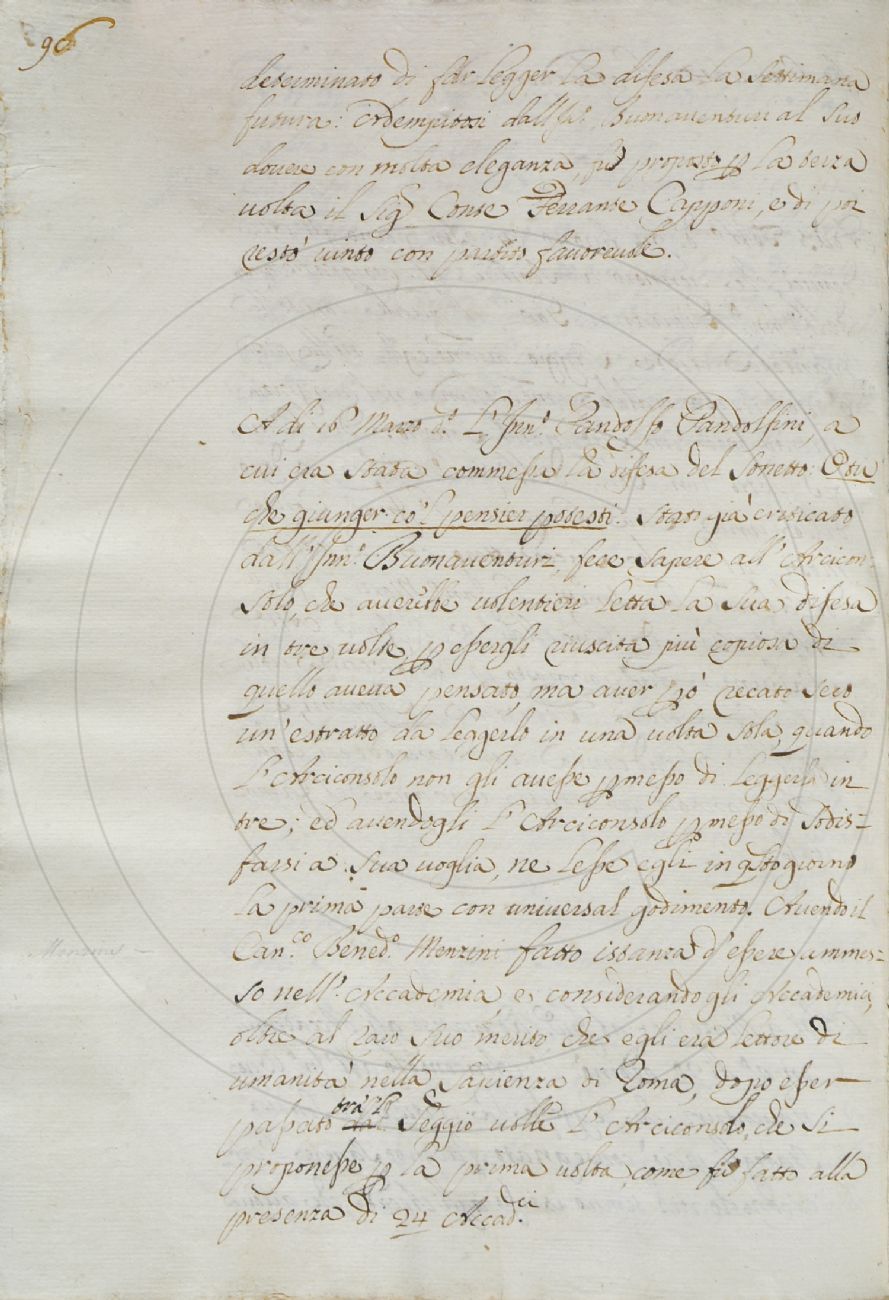 96
determinato di far legger la difesa la settimana
futura: Ed empitosi dall'Inn.º Buonaventuri al suo
dovere con molta eleganza, fù proposto p la terza
volta il Sig.r Conte Ferrante Capponi, e di poi
restò vinto con partito favorevole.
A di 16 Marzo d.º L'Inn.º Pandolfo Pandolfini, a
cui era stata commessa la difesa del Sonetto O tu
che giunger co'l pensier potesti: stato già criticato
dall'Inn.º Buonaventuri, fece sapere all'Arcicon
solo, che averebbe volentieri letta la sua difesa
in tre volte, p essergli riuscita più copiosa di
quello aveva pensato, ma aver pò recato seco
un'estratto da leggerlo in una volta sola, quando
l'Arciconsolo non gli avesse pmesso di leggerla in
tre; ed avendogli l'Arciconsolo pmesso di sodis=
farsi a sua voglia, ne lesse egli in qsto giorno
la prima parte con universal godimento. Avendo il
Menzini
Can.co Bened.º Menzini fatto istanza d'essere ammes=
so nell'Accademia, e considerando gli Accademici,
oltre al raro suo merito che egli era lettore di
umanità nella Sapienza di Roma, dopo esser
passato tra' lp Seggio volle l'Arciconsolo, che si
proponesse p la prima volta, come fù fatto alla
presenza di 24 Accad.ci